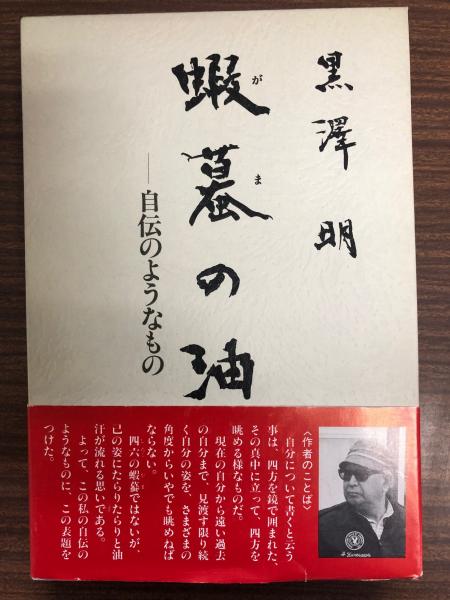 黒澤明
蝦蟇の油
がま
──自伝のようなもの
〈作者のことば〉
自分について書くと云う
事は、四方を鏡で囲まれた、
その真中に立って、四方を
眺める様なものだ。
現在の自分から遠い過去
の自分まで、見渡す限り続
く自分の姿を、さまざまの
角度からいやでも眺めねば
ならない。
四六の蝦蟇ではないが、
己の姿にたらりたらりと油
汗が流れる思いである。
よって、この私の自伝の
ようなものに、この表題を
つけた。
A. Kurosawa